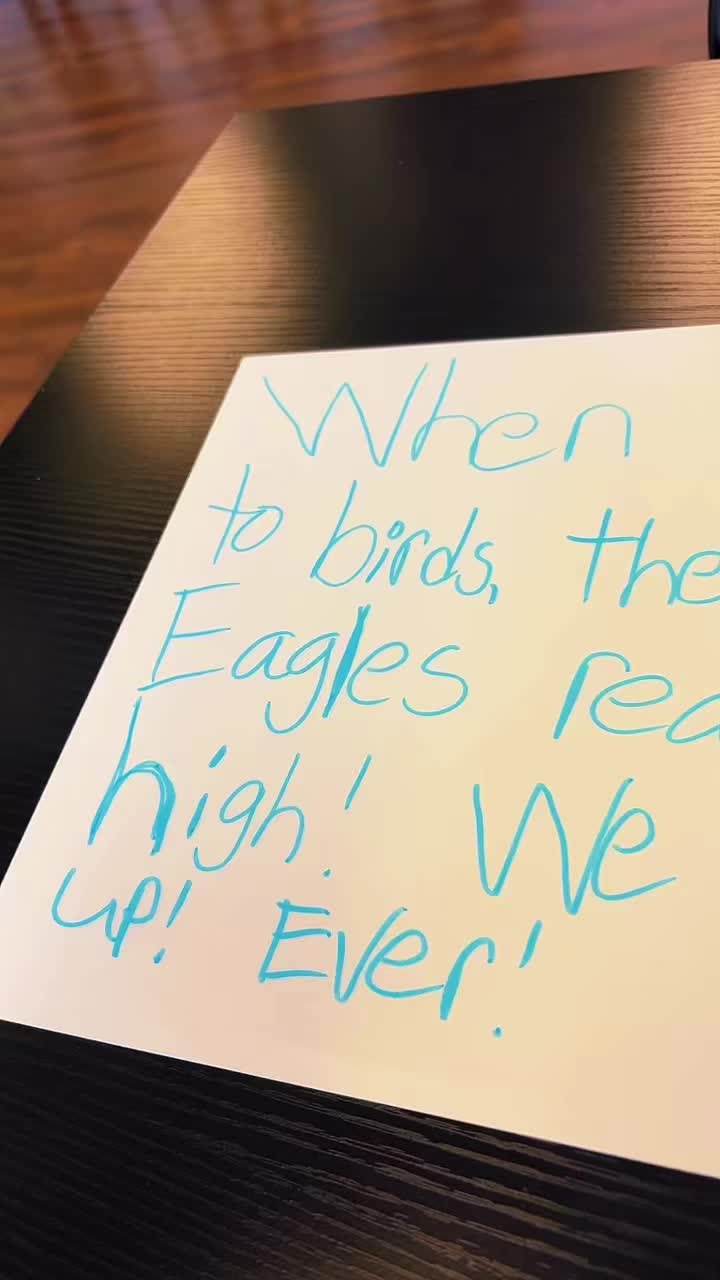 When
to birds, the
Eagles rea
high! We
up! Ever!